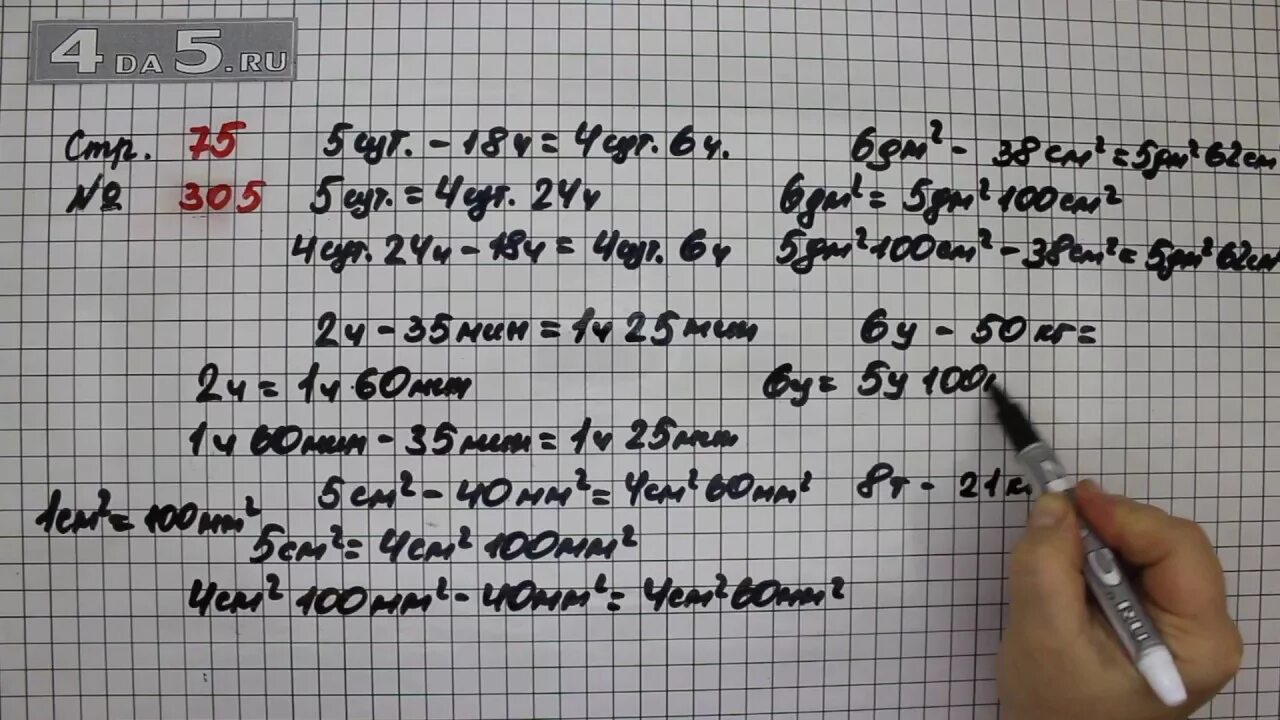 4DA5.RU
Стр. 75
№ 305
5 сут. - 18ч = 4сут. 6ч.
5сут. = 4сут. 24ч
4сут. 24ч - 18ч = 4сут. 6ч
6дм² - 38см² = 5дм² 62см
6дм² = 5дм² 100см²
5дм² 100см² - 38см² = 5дм² 62см
2ч - 35мин = 1ч 25мин
2ч = 1ч 60мин
1ч 60мин - 35мин = 1ч 25мин
6ц - 50кг =
6ц = 5ц 100
5см² - 40мм² = 4см² 60мм²
1см² = 100мм²
5см² = 4см² 100мм²
4см² 100мм² - 40мм² = 4см² 60мм²
8т - 21к
.RU